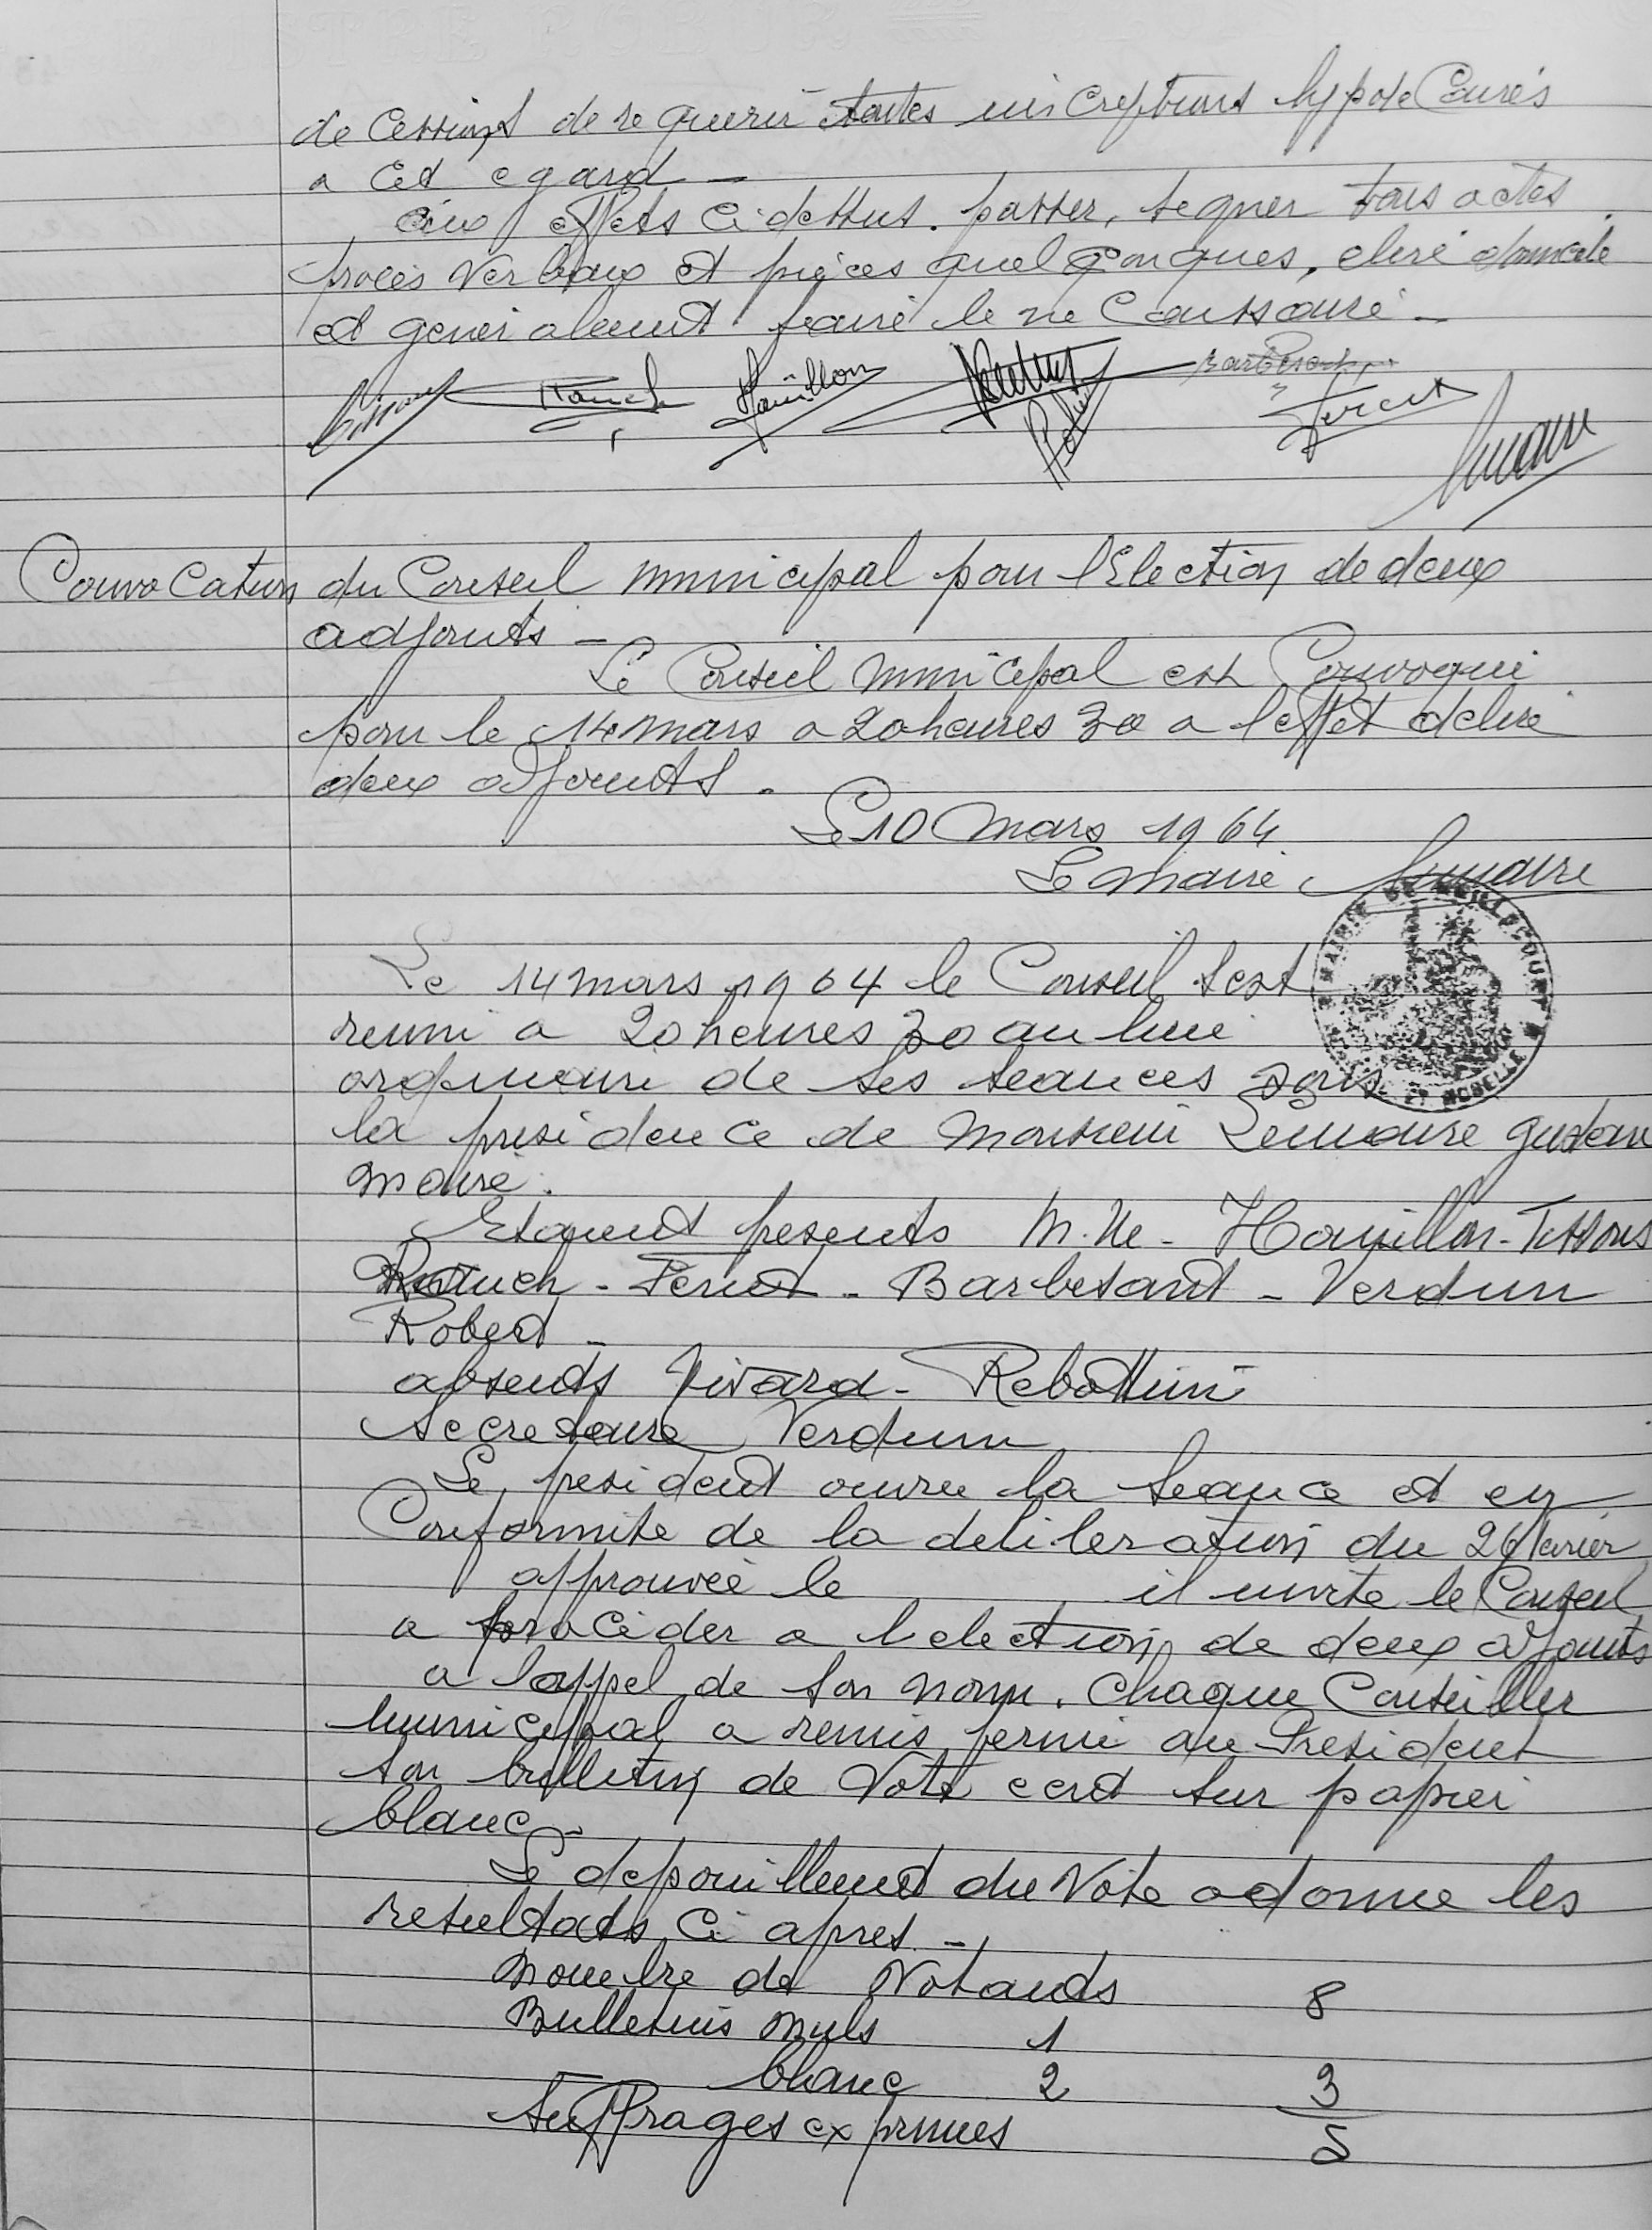 de cessions de requerir toutes inscriptions hypotecaires
a cet egard -
aux effets ci-dessus. passer, segner tous actes
procès verbaux et pièces quelconques, elire domicile
et generalement faire le nécessaire -
Tissons Hauillon Barbesant
Robert Feriet Lemaire
Convocation du Conseil municipal pour l'Election de deux
adjoints -
Le Conseil municipal est Convoqué
pour le 14 mars a 20 heures 30 a l'effet d'elire
deux adjoints.
Le 10 Mars 1964
Le Maire Lemaire
MAIRIE ET MOSELLE
Le 14 mars 1964 le Conseil s'est
reuni a 20 heures 30 au lieu
ordinaire de ses seances sous
la presidence de Monsieur Lemaire gustave
Maire.
Etaient presents M. Me - Hauillon - Tissons
- Feriet - Barbesant - Verdun
Robert -
absents Vivard - Rebottini
Secretaire Verdun
Le president ouvre la seance et en
Conformite de la deliberation du 26 fevrier
approuvée le il invite le Conseil
a procéder a l'election de deux adjoints
a l'appel de son nom. Chaque Conseiller
municipal a remis fermé au President
son bulletin de Vote ecrit sur papier
blanc -
Le depouillement du Vote a donne les
resultats ci apres -
Nombre de Votants 8
Bulletins nuls 1
blanc 2 3
Suffrages exprimes 5